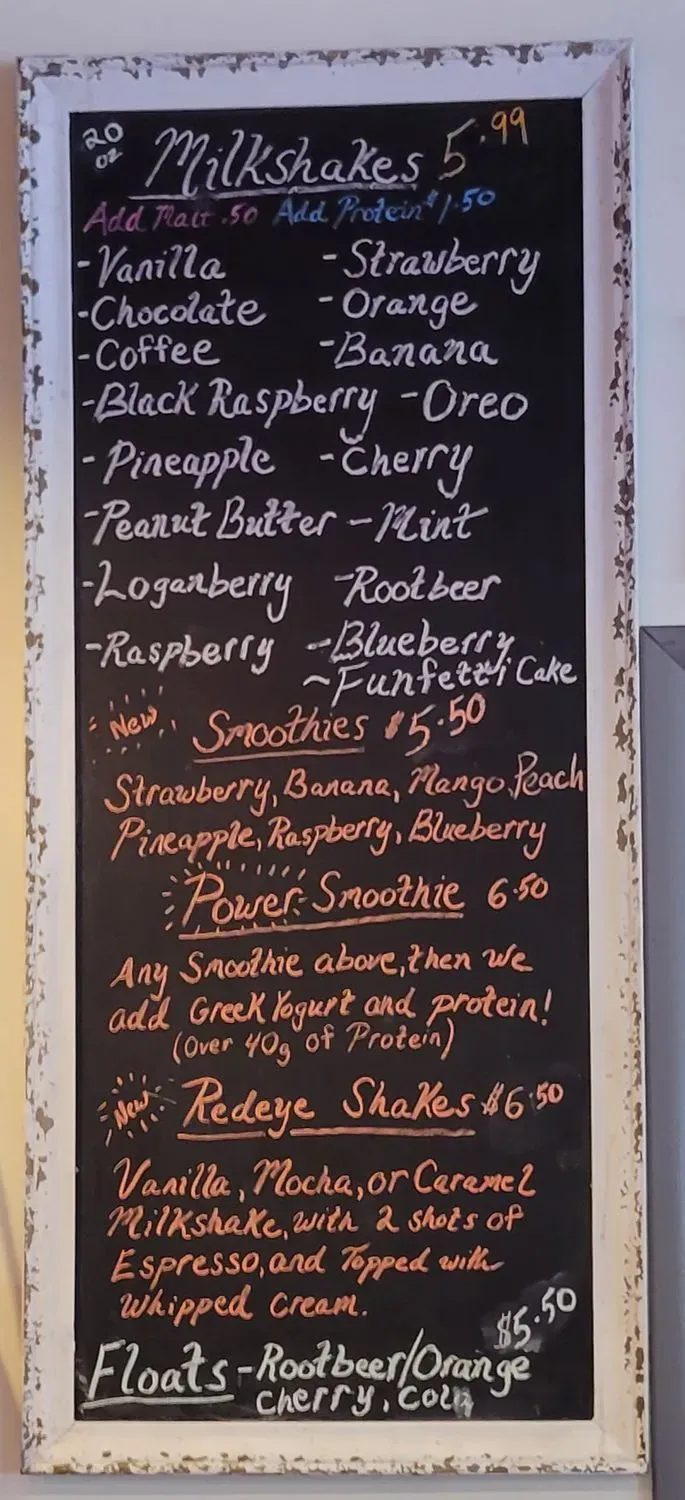 20 oz Milkshakes 5.99
Add Malt .50 Add Protein $1.50
-Vanilla -Strawberry
-Chocolate -Orange
-Coffee -Banana
-Black Raspberry -Oreo
-Pineapple -Cherry
-Peanut Butter -Mint
-Loganberry -Rootbeer
-Raspberry -Blueberry
~Funfetti Cake
New Smoothies $5.50
Strawberry, Banana, Mango, Peach
Pineapple, Raspberry, Blueberry
Power Smoothie 6.50
Any Smoothie above, then we
add Greek Yogurt and protein!
(Over 40g of Protein)
New Redeye Shakes $6.50
Vanilla, Mocha, or Caramel
Milkshake, with 2 shots of
Espresso, and Topped with
whipped cream.
$5.50
Floats -Rootbeer/Orange
cherry, cola